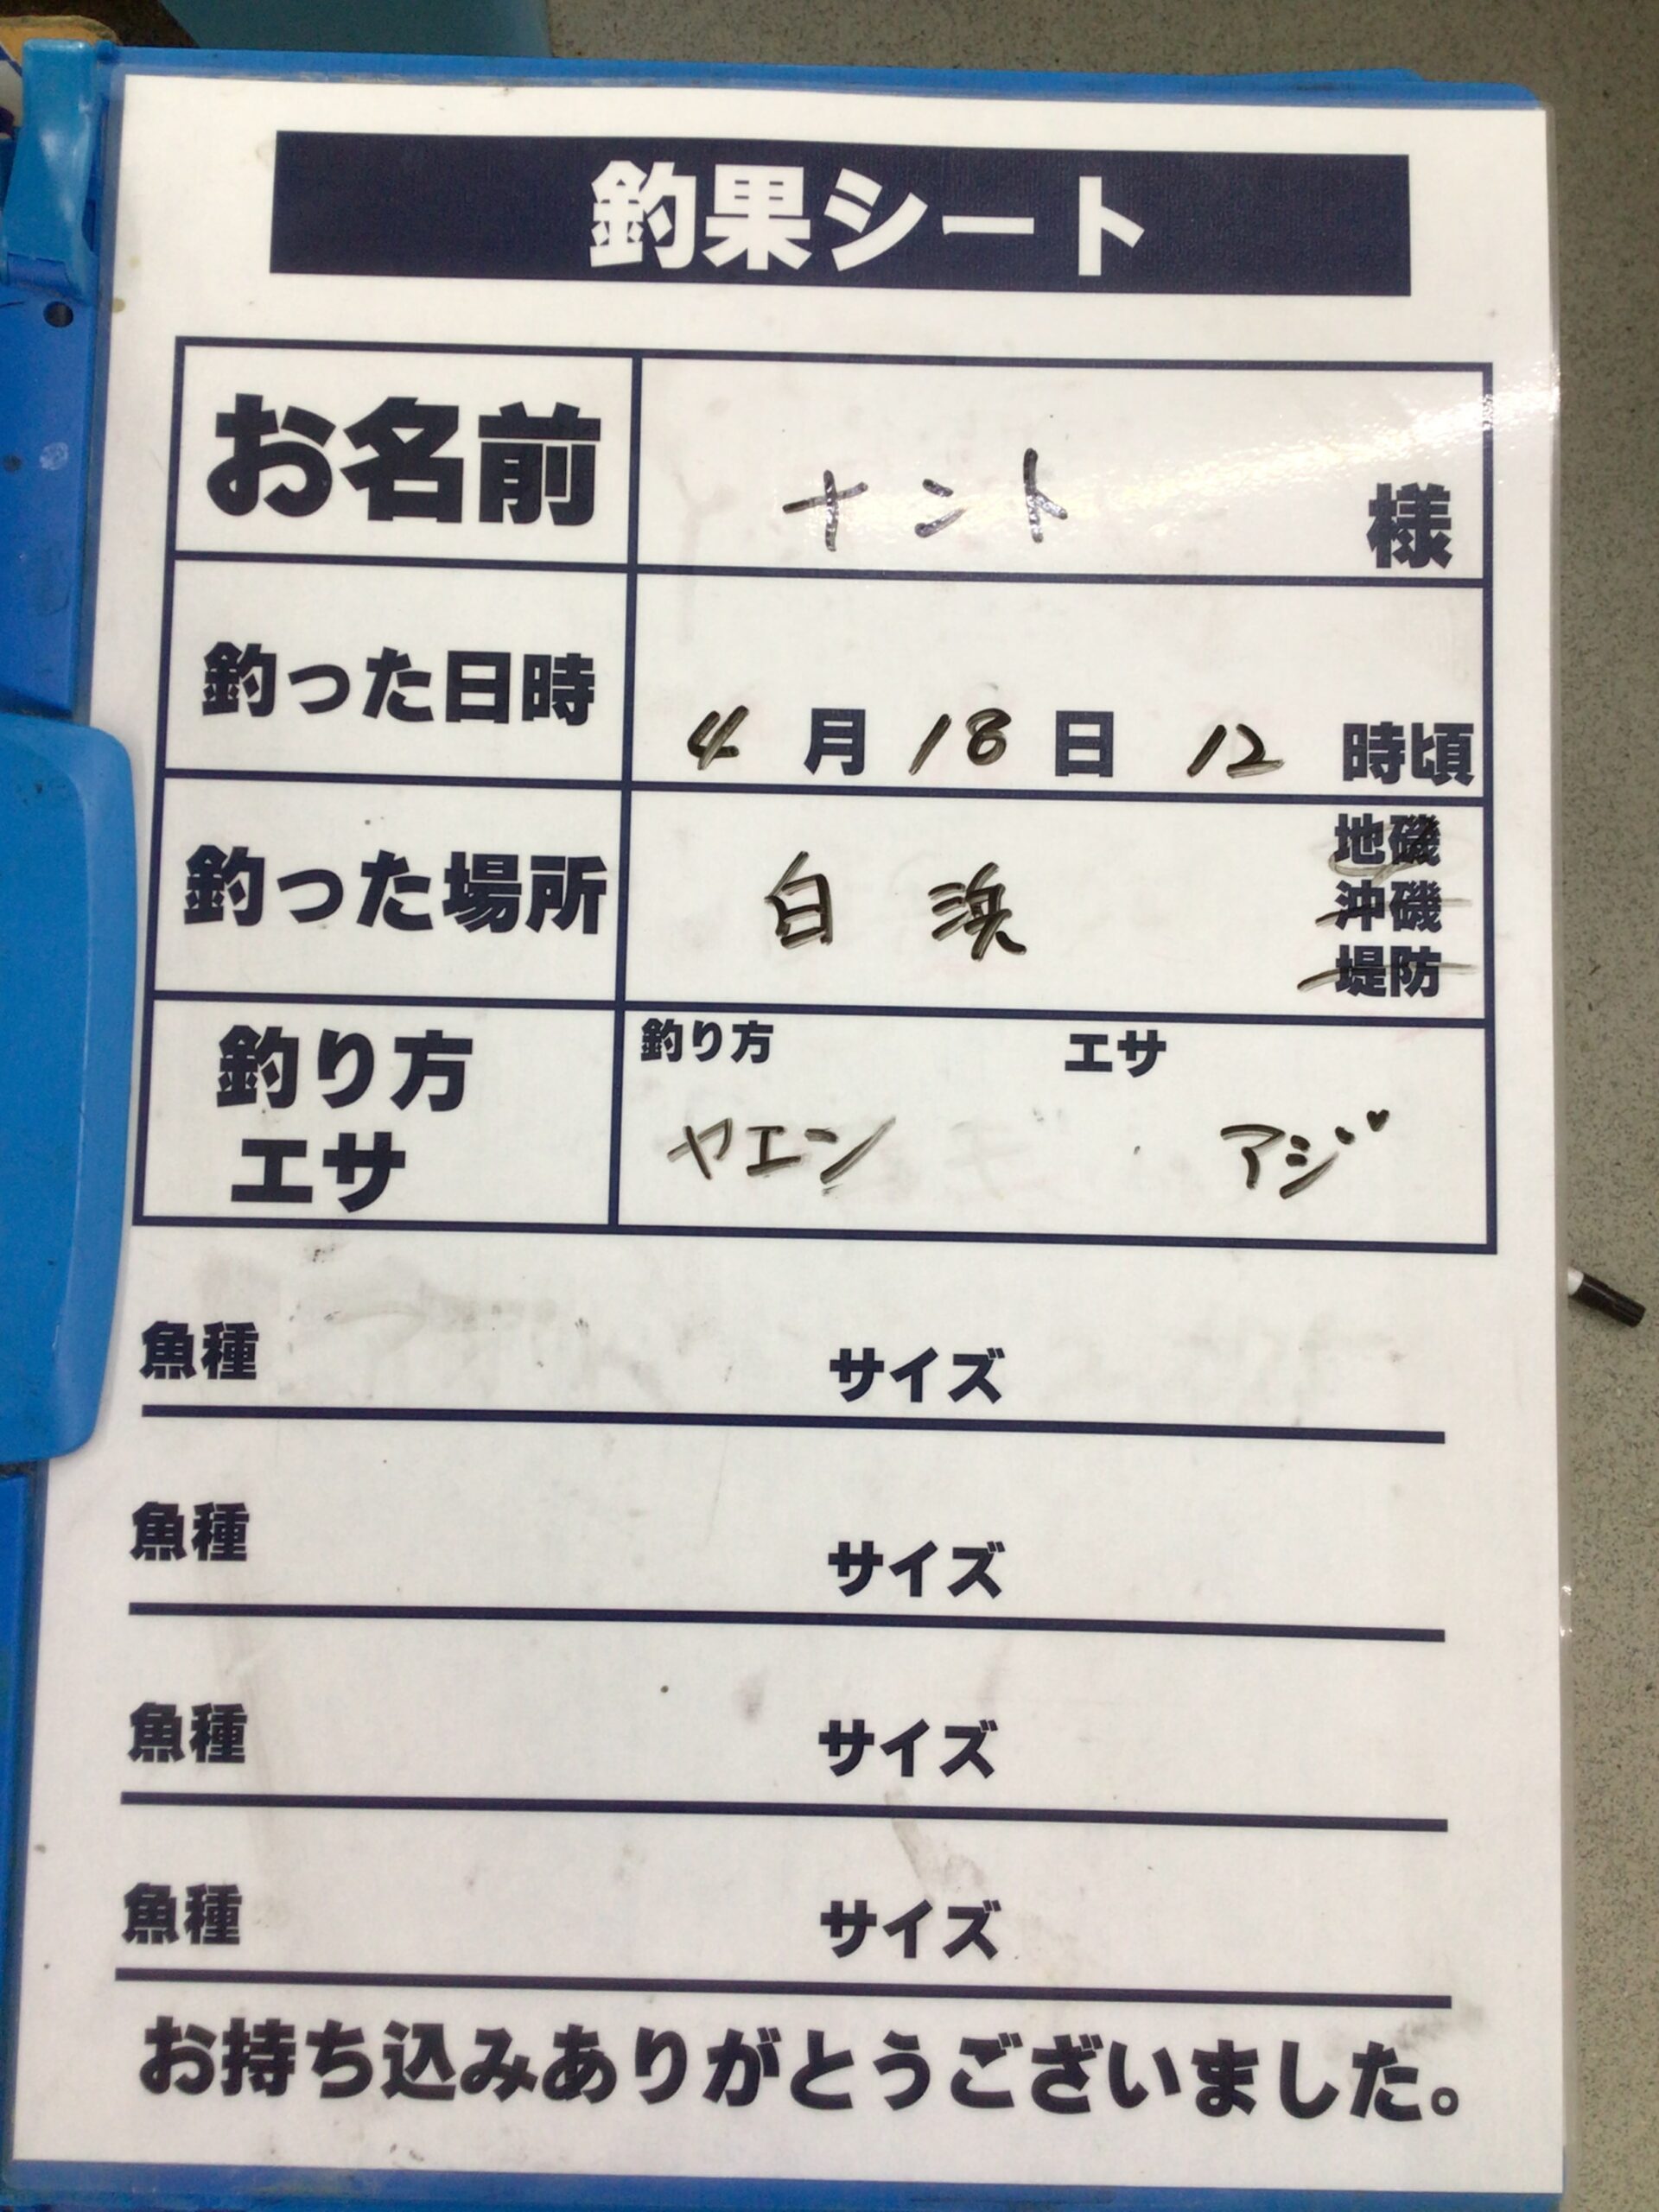 釣果シート
お名前 ナント 様
釣った日時 4月18日 12時頃
釣った場所 白浜 地磯
沖磯
堤防
釣り方 エサ
釣り方 エサ
ヤエン アジ
魚種 サイズ
魚種 サイズ
魚種 サイズ
魚種 サイズ
お持ち込みありがとうございました。